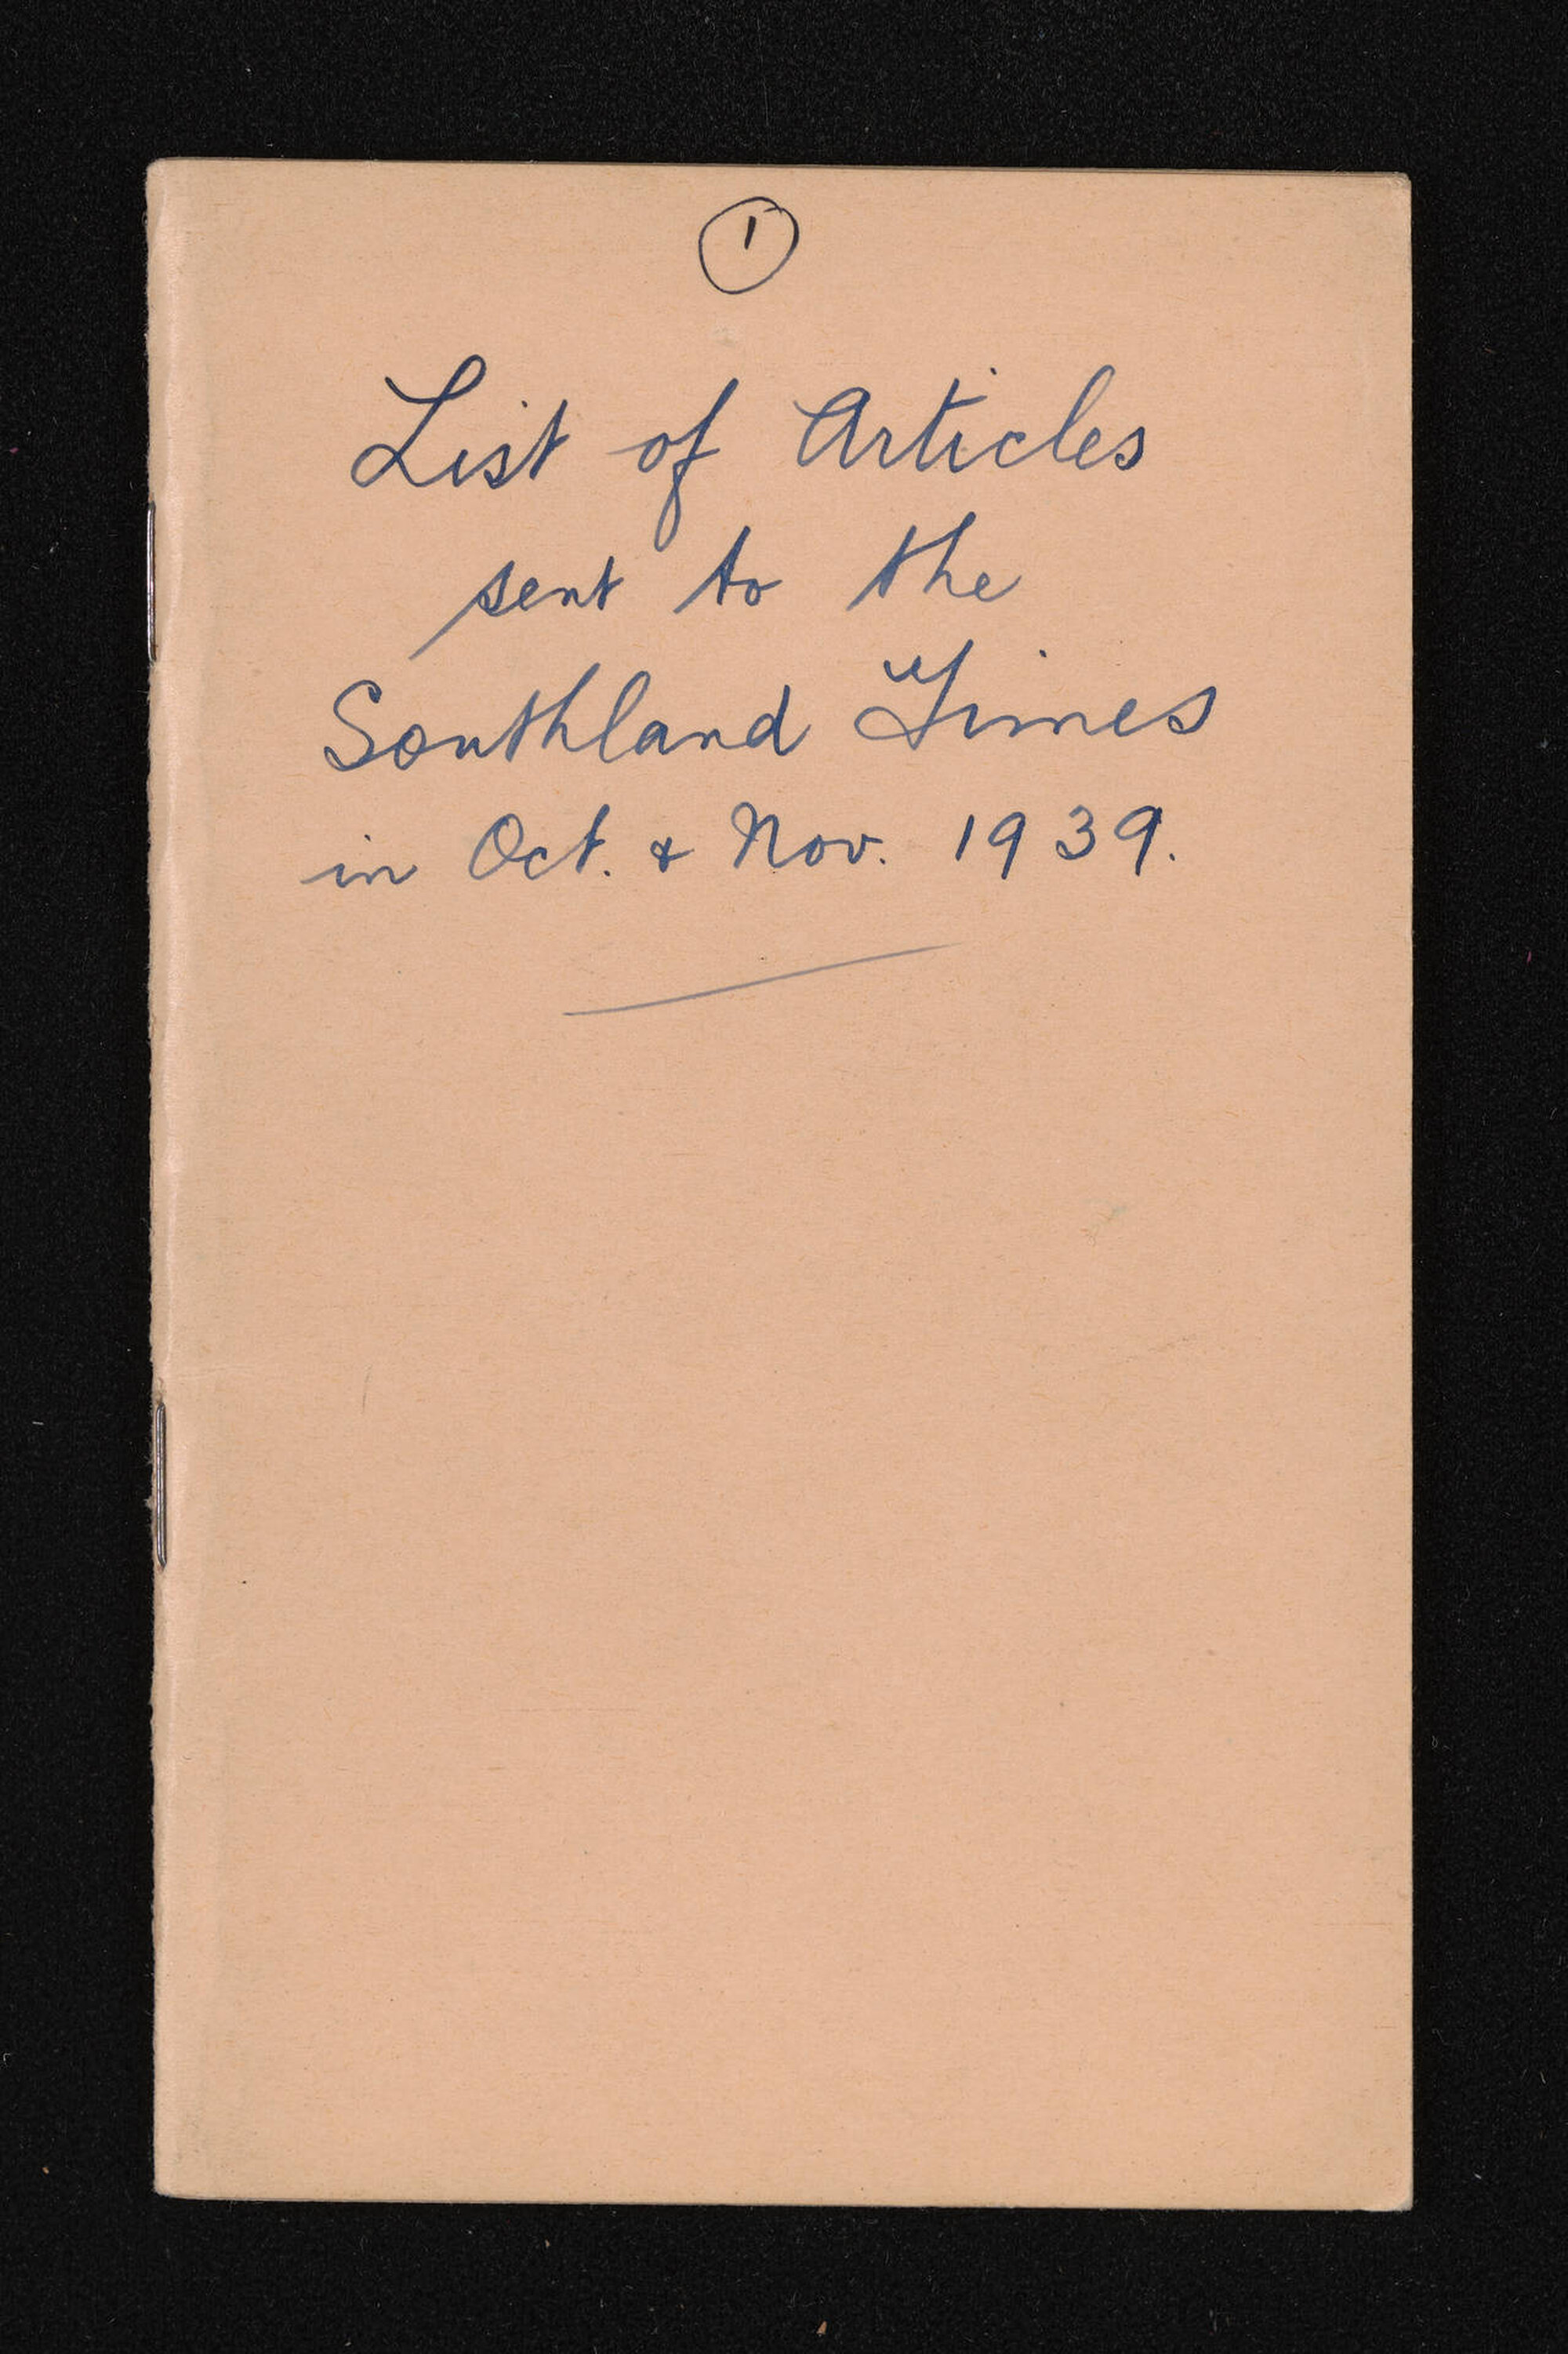 1
List of Articles
sent to the
Southland Times
in Oct. & Nov. 1939.